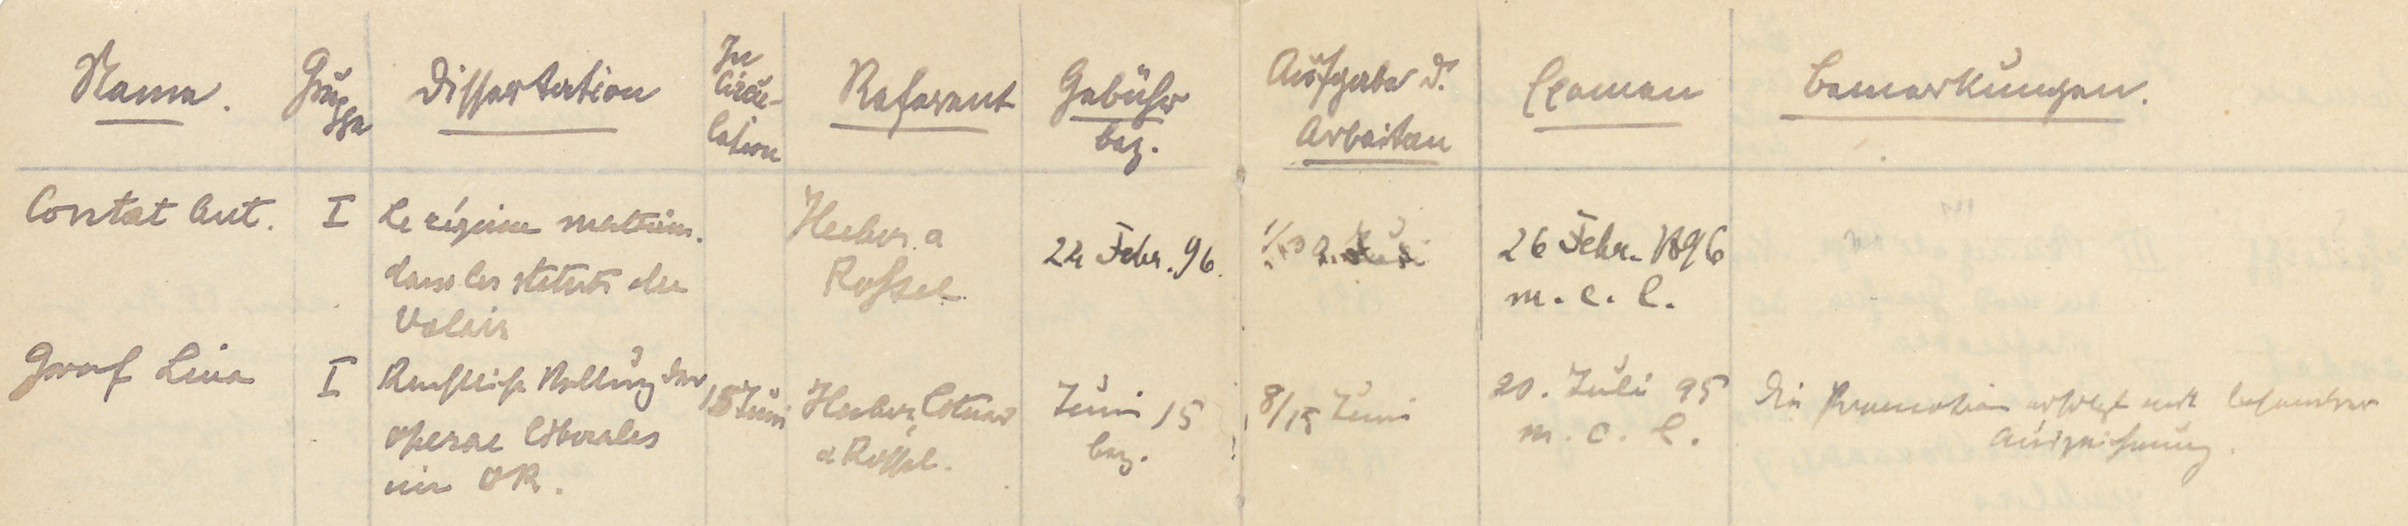 Name.
Gruppe
Dissertation
In Circu-
lation
Referent
Gebühr
bez.
Ausgabe d.
Arbeiten
Examen
Bemerkungen.
Contat Ant.
I
Le régime matrim.
dans les statuts du
Valais
Huber a
Rossel
24 Febr. 96.
26 Febr. 1896
m. c. l.
Graf Lina
I
Rechtliche Stellung der
operae liberales
im OR.
15 Juni
Huber, Lotmar
a Rossel.
Juni 15
bez.
8/15 Juni
20. Juli 95
m. c. l.
Die Promotion erfolgt mit besonderer
Auszeichnung.